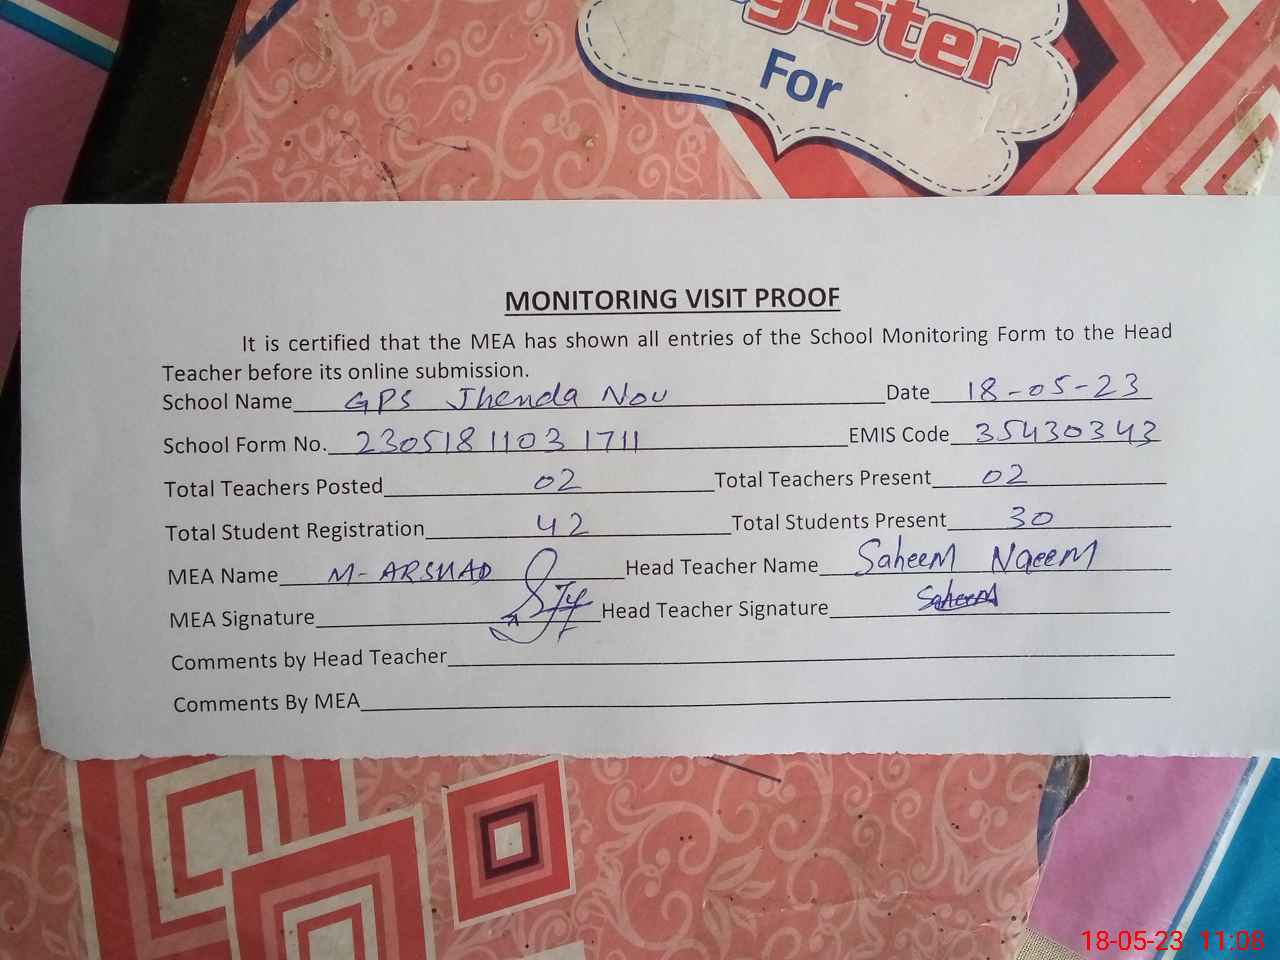 Register
For
MONITORING VISIT PROOF
It is certified that the MEA has shown all entries of the School Monitoring Form to the Head
Teacher before its online submission.
School Name GPS Jhenda Nou Date 18-05-23
School Form No. 2305181103 1711 EMIS Code 35430343
Total Teachers Posted 02 Total Teachers Present 02
Total Student Registration 42 Total Students Present 30
MEA Name M-ARSHAD Head Teacher Name Saheem Naeem
MEA Signature Head Teacher Signature Saheem
Comments by Head Teacher
Comments By MEA
18-05-23 11:08